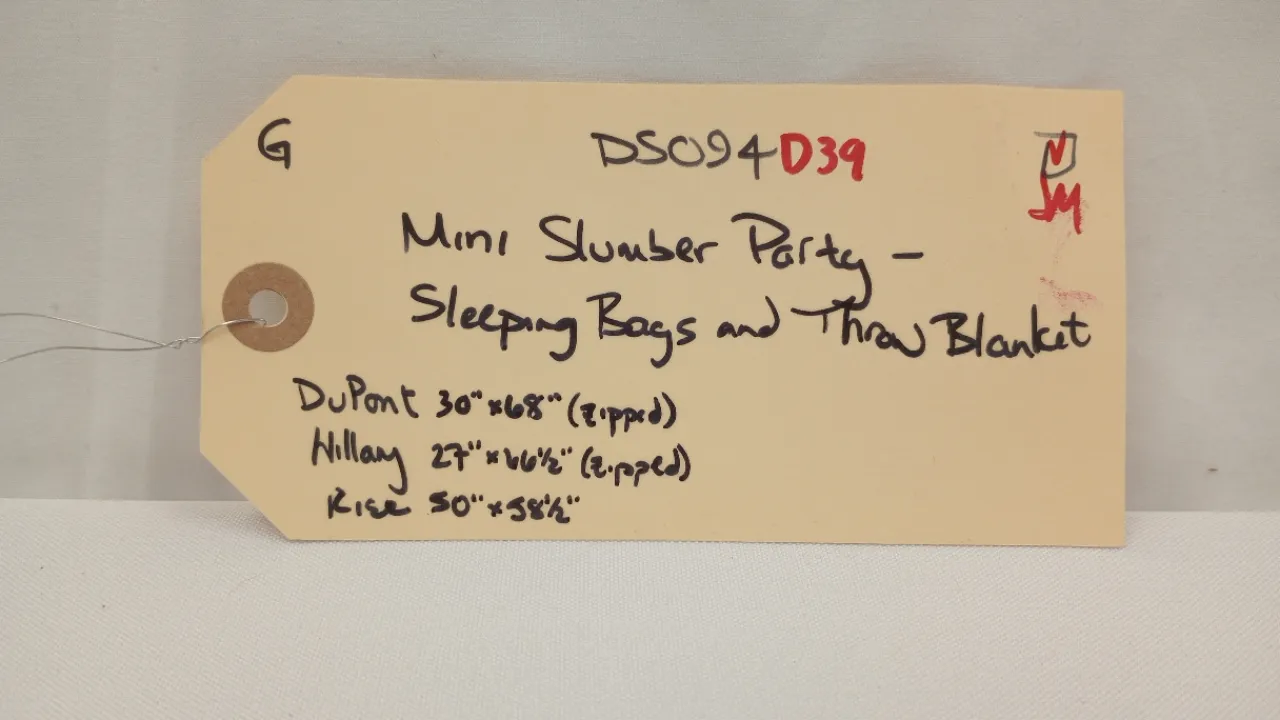 G DS094D39
JM
Mini Slumber Party -
Sleeping Bags and Throw Blanket
DuPont 30"x68" (zipped)
Hillary 27"x66½" (zipped)
Rise 50"x58½"